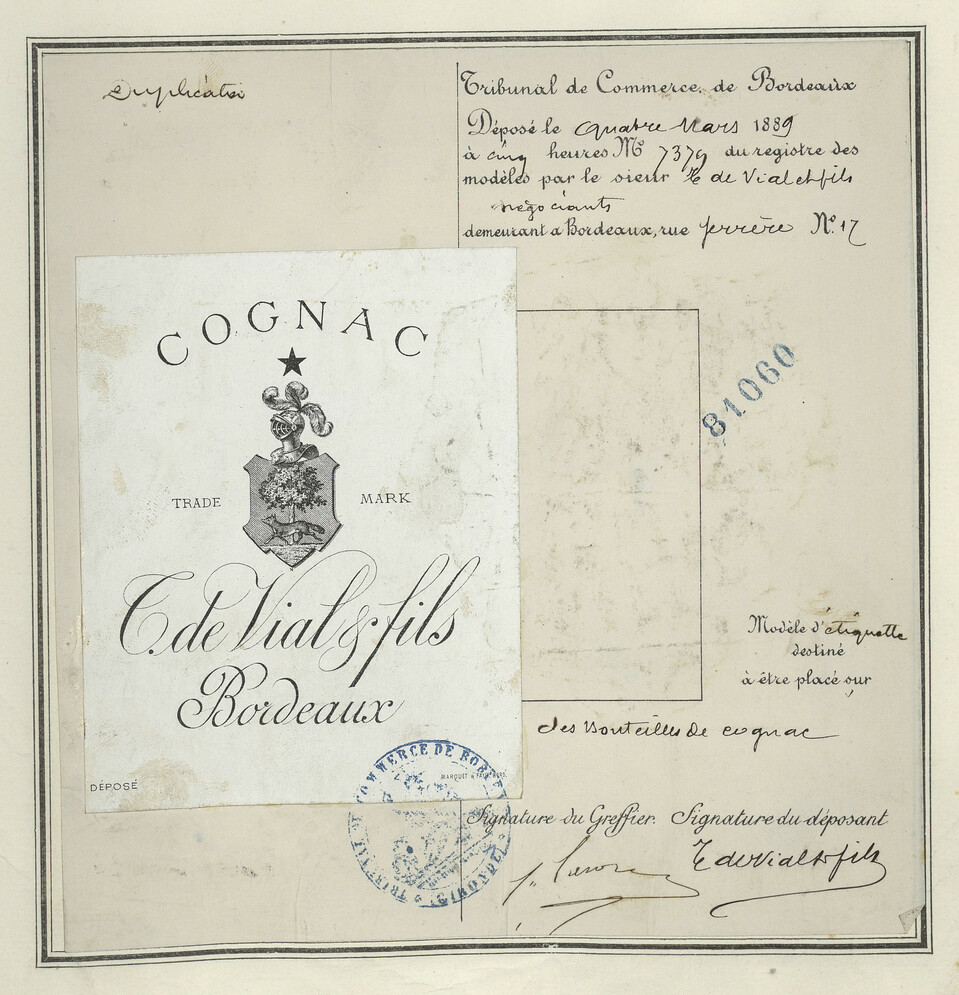 Duplicata
Tribunal de Commerce de Bordeaux
Déposé le quatre Mars 1889
à cinq heures No 7379 du registre des
modèles par le sieur T de Vial et fils
négociants
demeurant a Bordeaux, rue ferrère No. 17
COGNAC
TRADE MARK
T. de Vial & fils
Bordeaux
DÉPOSÉ
81060
Modèle d'étiquette
destiné
à être placé sur
des Bouteilles de cognac
TRIBUNAL DE COMMERCE DE BORDEAUX
Signature du Greffier. Signature du déposant
T de Vial & fils